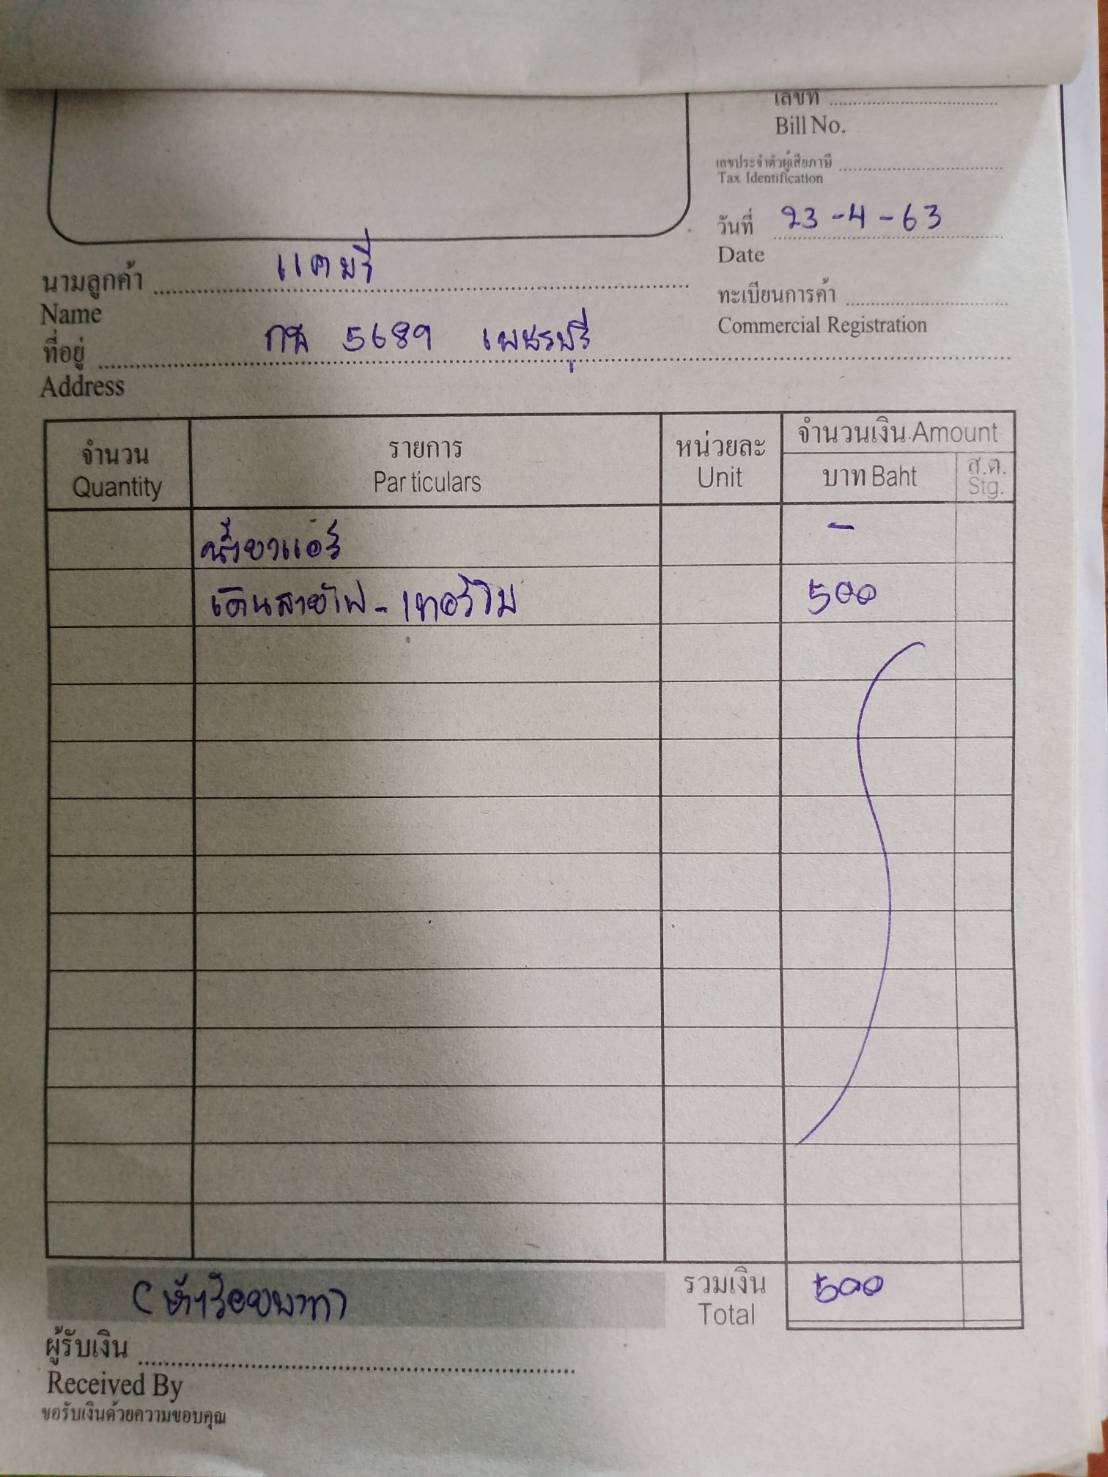 เลขที่
Bill No.
เลขประจำตัวผู้เสียภาษี
Tax Identification
วันที่ 23-4-63
Date
นามลูกค้า แคมรี่
Name
ทะเบียนการค้า
Commercial Registration
ที่อยู่ 5689 เพชรบุรี
Address
จำนวน รายการ หน่วยละ จำนวนเงิน Amount
Quantity Particulars Unit บาท Baht ส.ต. Stg.
น้ำยาแอร์ -
เดินสายไฟ - เทอร์โม 500
(ห้าร้อยบาท) รวมเงิน 500
Total
ผู้รับเงิน
Received By
ขอรับเงินด้วยความขอบคุณ